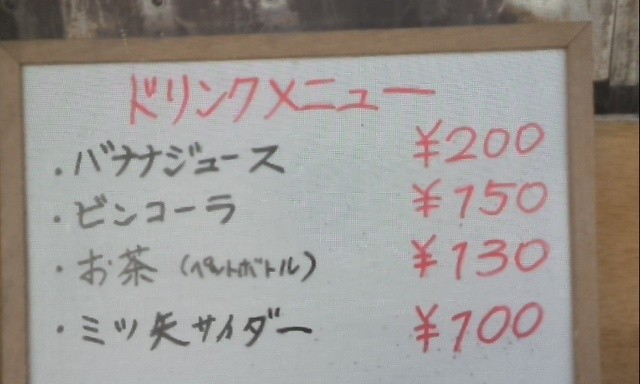 ドリンクメニュー
・バナナジュース ¥200
・ビンコーラ ¥150
・お茶（ペットボトル） ¥130
・ミツ矢サイダー ¥100